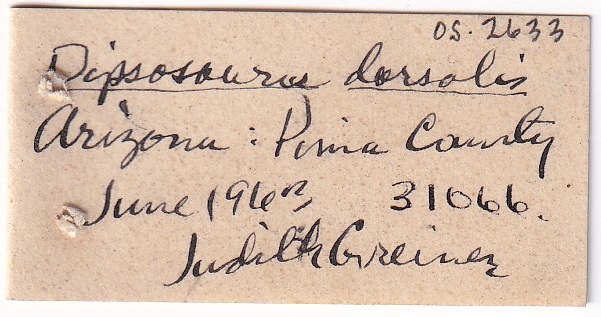 OS. 2633
Dipsosaurus dorsalis
Arizona : Pima County
June 1963 31066.
Judith Greiner